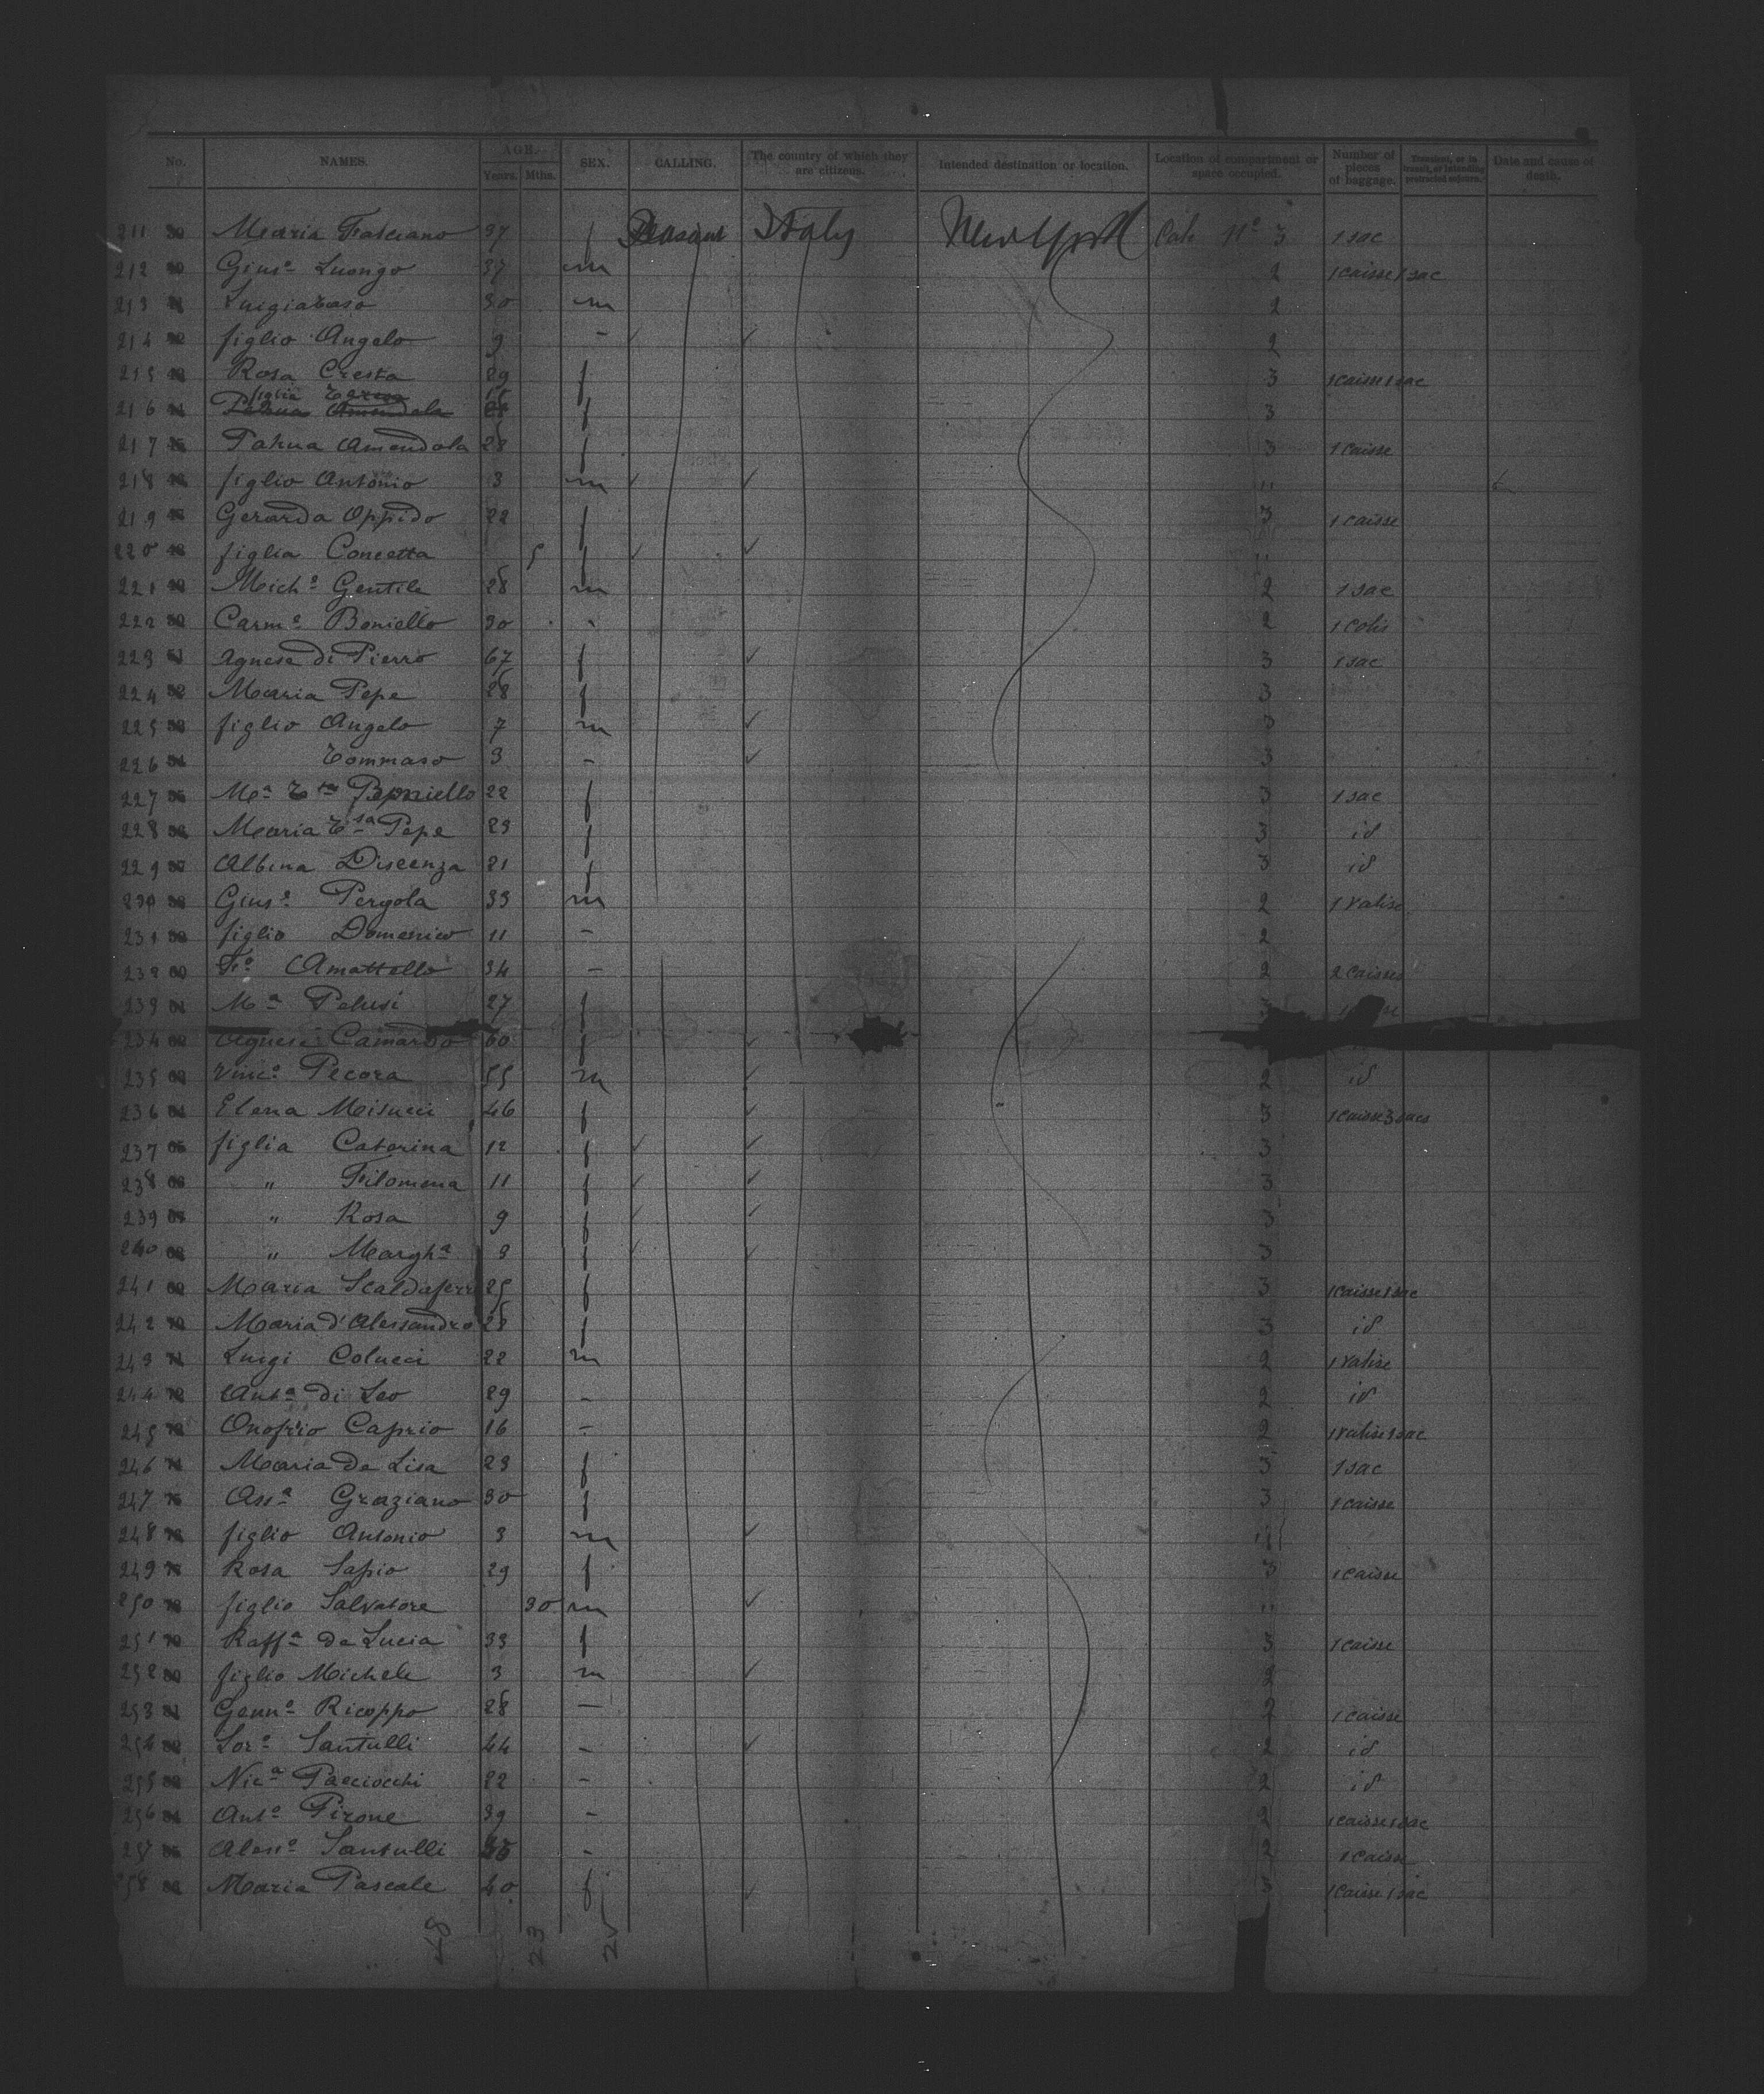 No. NAMES. AGE. Years. Mths. SEX. CALLING. The country of which they are citizens. Intended destination or location. Location of compartment or space occupied. Number of pieces of baggage. Transient, or in transit, or intending protracted sojourn. Date and cause of death.
211 Maria Fasciano 37 f Peasant Italy New York Cab Nº 3 1 sac
212 Giusº Luongo 37 m 2 1 caisse 1 sac
213 30 m 2
214 figlio Angelo 9 - 2
215 Rosa Cresta 29 f 3 1 caisse 1 sac
216 figlia Teresa f 3
217 Amendola 28 f 3 1 caisse
218 figlio Antonio 3 m "
219 Gerarda Oppido 22 f 3 1 caisse
220 figlia Concetta 5 f "
221 Michº Gentile 28 m 2 1 sac
222 Carmº Boniello 30 - 2 1 colis
223 Agnese di Pierro 67 f 3 1 sac
224 Maria Pepe 28 f 3
225 figlio Angelo 7 m 3
226 Tommaso 3 - 3
227 Mª Tsa Boniello 22 f 3 1 sac
228 Maria Tsa Pepe 23 f 3 id
229 Albina Discenza 21 f 3 id
230 Giusº Pergola 33 m 2 1 valise
231 figlio Domenico 11 - 2
232 Frº Amattello 34 - 2 2 caisses
233 Mª Pelusi 27 f 3
234 Agnese Camardo 60 f
235 Vincº Pecora 55 m 2 id
236 Elena Misucci 46 f 3 1 caisse 3 sacs
237 figlia Caterina 12 f 3
238 " Filomena 11 f 3
239 " Rosa 9 f 3
240 " Marghª 3 f 3
241 Maria Scaldaferri 25 f 3 1 caisse 1 sac
242 Maria d'Alessandro 28 f 3 id
243 Luigi Colucci 22 m 2 1 valise
244 Antª di Leo 29 - 2 id
245 Onofrio Caprio 16 - 2 1 valise 1 sac
246 Maria de Lisa 23 f 3 1 sac
247 Assª Graziano 30 f 3 1 caisse
248 figlio Antonio 3 m "
249 Rosa Sapio 29 f 3 1 caisse
250 figlio Salvatore 30 m "
251 Raffª de Lucia 33 f 3 1 caisse
252 figlio Michele 3 m 2
253 Gennº Ricoppo 28 - 2 1 caisse
254 Lorº Santulli 44 - 2 id
255 Nicª Pacciocchi 22 - 2 id
256 Antº Pirone 39 - 2 1 caisse 1 sac
257 Alessº Santulli - 2 1 caisse
258 Maria Pascale 40 f 3 1 caisse 1 sac
48 23